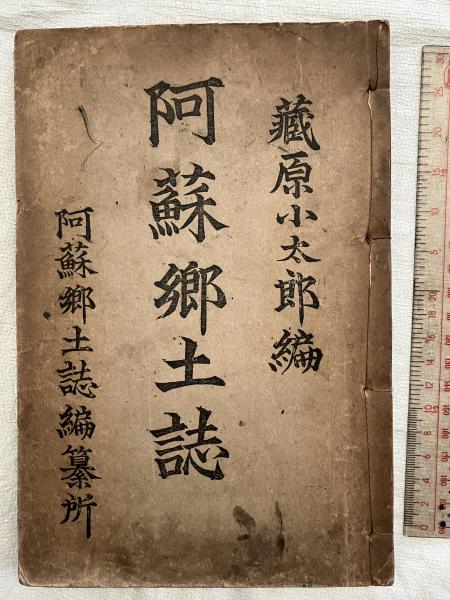 藏原小太郎編
阿蘇鄉土誌
阿蘇鄉土誌編纂所